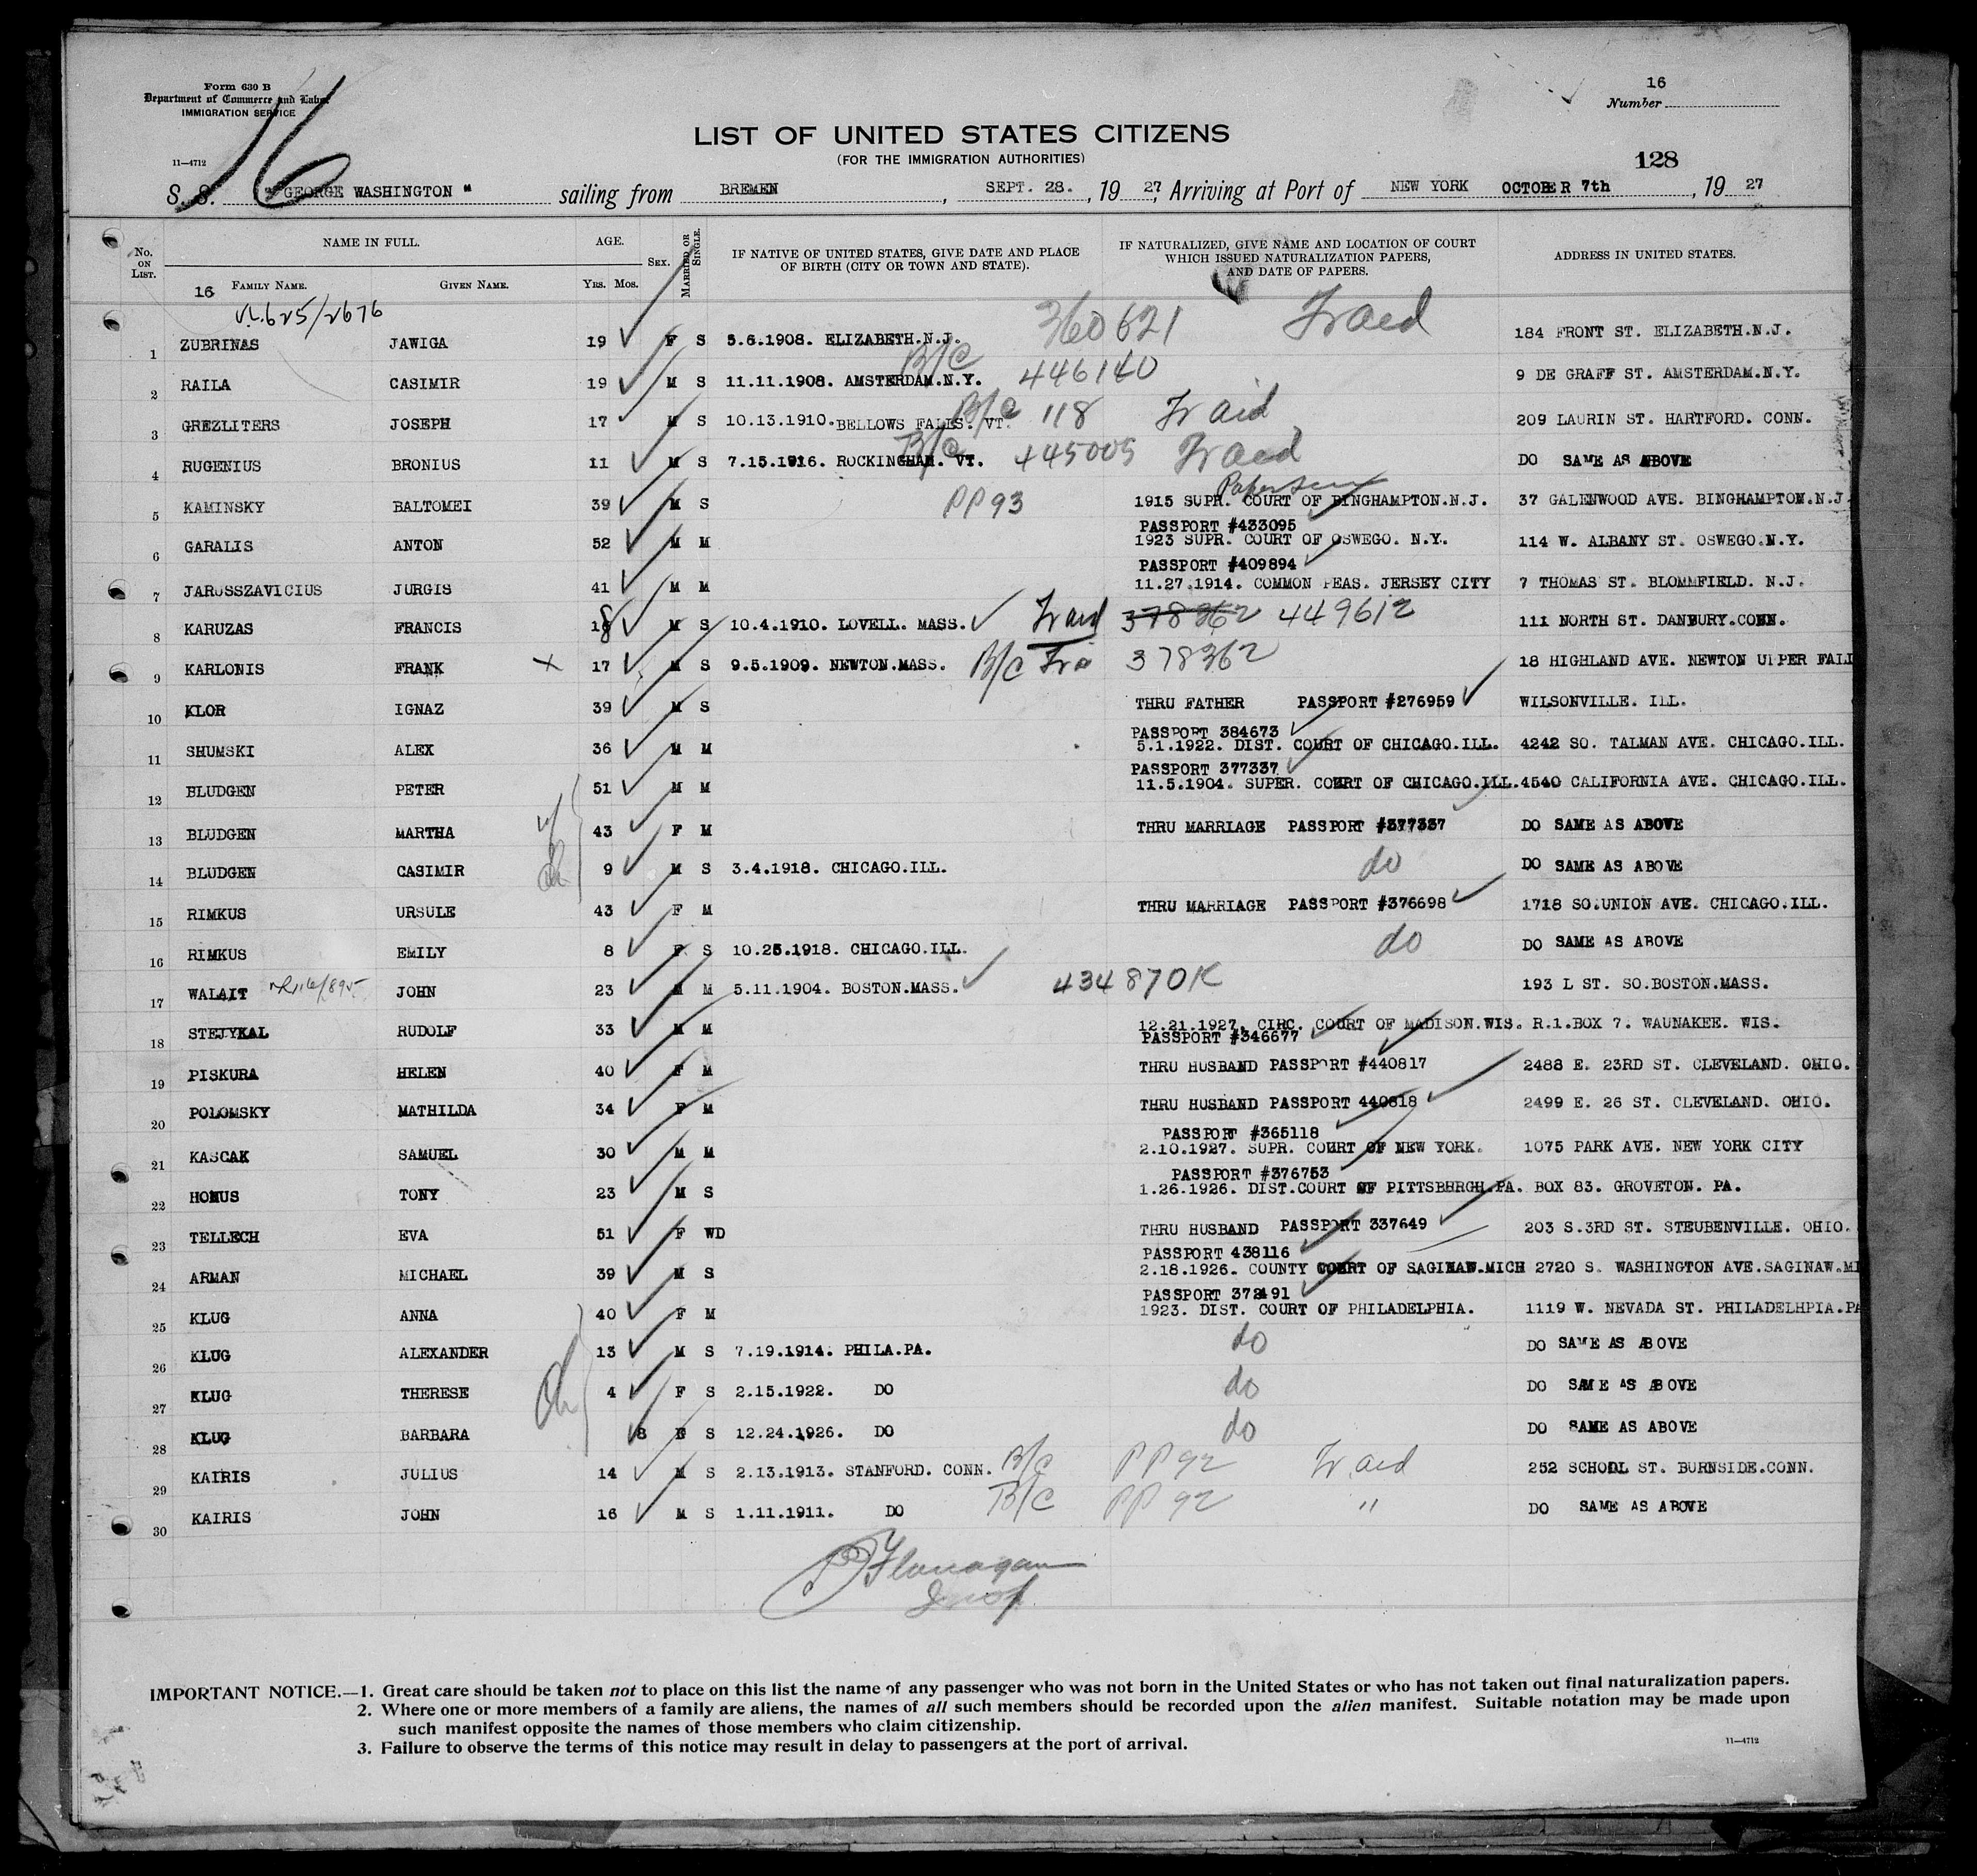 Form 630 B
Department of Commerce and Labor
IMMIGRATION SERVICE
16
Number
LIST OF UNITED STATES CITIZENS
(FOR THE IMMIGRATION AUTHORITIES)
11—4712
16
128
S. S. "GEORGE WASHINGTON" sailing from BREMEN, SEPT. 28. , 19 27, Arriving at Port of NEW YORK OCTOBER 7th , 19 27
No. ON LIST. NAME IN FULL. AGE. SEX. MARRIED OR SINGLE. IF NATIVE OF UNITED STATES, GIVE DATE AND PLACE OF BIRTH (CITY OR TOWN AND STATE). IF NATURALIZED, GIVE NAME AND LOCATION OF COURT WHICH ISSUED NATURALIZATION PAPERS, AND DATE OF PAPERS. ADDRESS IN UNITED STATES.
16 FAMILY NAME. GIVEN NAME. YRS. MOS.
1 ZUBRINAS JAWIGA 19 F S 5.6.1908. ELIZABETH.N.J. 360621 184 FRONT ST. ELIZABETH.N.J.
B/C
2 RAILA CASIMIR 19 M S 11.11.1908. AMSTERDAM.N.Y. 446140 9 DE GRAFF ST. AMSTERDAM.N.Y.
3 GREZLITERS JOSEPH 17 M S 10.13.1910. BELLOWS FALLS. VT. B/C 118 209 LAURIN ST. HARTFORD. CONN.
4 RUGENIUS BRONIUS 11 M S 7.15.1916. ROCKINGHAM. VT. B/C 445005 DO SAME AS ABOVE
5 KAMINSKY BALTOMEI 39 M S PP 93 1915 SUPR. COURT OF BINGHAMPTON.N.J. 37 GALENWOOD AVE. BINGHAMPTON.N.J.
PASSPORT #433095
6 GARALIS ANTON 52 M M 1923 SUPR. COURT OF OSWEGO. N.Y. 114 W. ALBANY ST. OSWEGO.N.Y.
PASSPORT #409894
7 JAROSSZAVICIUS JURGIS 41 M M 11.27.1914. COMMON PEAS. JERSEY CITY 7 THOMAS ST. BLOMMFIELD. N.J.
8 KARUZAS FRANCIS 18 M S 10.4.1910. LOVELL. MASS. 378362 449612 111 NORTH ST. DANBURY.CONN.
9 KARLONIS FRANK X 17 M S 9.5.1909. NEWTON.MASS. B/C 378362 18 HIGHLAND AVE. NEWTON UPPER FALL
10 KLOR IGNAZ 39 M S THRU FATHER PASSPORT #276959 WILSONVILLE. ILL.
PASSPORT 384673
11 SHUMSKI ALEX 36 M M 5.1.1922. DIST. COURT OF CHICAGO.ILL. 4242 SO. TALMAN AVE. CHICAGO.ILL.
PASSPORT 377337
12 BLUDGEN PETER 51 M M 11.5.1904. SUPER. COURT OF CHICAGO.ILL. 4540 CALIFORNIA AVE. CHICAGO.ILL.
13 BLUDGEN MARTHA 43 F M THRU MARRIAGE PASSPORT #377337 DO SAME AS ABOVE
14 BLUDGEN CASIMIR 9 M S 3.4.1918. CHICAGO.ILL. do DO SAME AS ABOVE
15 RIMKUS URSULE 43 F M THRU MARRIAGE PASSPORT #376698 1718 SO.UNION AVE. CHICAGO.ILL.
16 RIMKUS EMILY 8 F S 10.25.1918. CHICAGO.ILL. do DO SAME AS ABOVE
17 WALAIT JOHN 23 M M 5.11.1904. BOSTON.MASS. 193 L ST. SO.BOSTON.MASS.
18 STEJYKAL RUDOLF 33 M M 12.21.1927, CIRC. COURT OF MADISON.WIS. R.1.BOX 7. WAUNAKEE. WIS.
PASSPORT #346677
19 PISKURA HELEN 40 F M THRU HUSBAND PASSPORT #440817 2488 E. 23RD ST. CLEVELAND. OHIO.
20 POLOMSKY MATHILDA 34 F M THRU HUSBAND PASSPORT 440818 2499 E. 26 ST. CLEVELAND. OHIO.
PASSPORT #365118
21 KASCAK SAMUEL 30 M M 2.10.1927. SUPR. COURT OF NEW YORK. 1075 PARK AVE. NEW YORK CITY
PASSPORT #376753
22 HONUS TONY 23 M S 1.26.1926. DIST.COURT OF PITTSBURGH.PA. BOX 83. GROVETON. PA.
23 TELLECH EVA 51 F WD THRU HUSBAND PASSPORT 337649 203 S.3RD ST. STEUBENVILLE. OHIO.
PASSPORT 438116
24 ARMAN MICHAEL 39 M S 2.18.1926. COUNTY COURT OF SAGINAW.MICH 2720 S. WASHINGTON AVE.SAGINAW.MI
PASSPORT 372491
25 KLUG ANNA 40 F M 1923. DIST. COURT OF PHILADELPHIA. 1119 W. NEVADA ST. PHILADELHPIA.PA
26 KLUG ALEXANDER 13 M S 7.19.1914. PHILA.PA. do DO SAME AS ABOVE
27 KLUG THERESE 4 F S 2.15.1922. DO do DO SAME AS ABOVE
28 KLUG BARBARA 8 F S 12.24.1926. DO do DO SAME AS ABOVE
29 KAIRIS JULIUS 14 M S 2.13.1913. STANFORD. CONN. B/C PP 92 252 SCHOOL ST. BURNSIDE.CONN.
30 KAIRIS JOHN 16 M S 1.11.1911. DO B/C PP 92 " DO SAME AS ABOVE
Flanagan
Insp
IMPORTANT NOTICE.—1. Great care should be taken not to place on this list the name of any passenger who was not born in the United States or who has not taken out final naturalization papers.
2. Where one or more members of a family are aliens, the names of all such members should be recorded upon the alien manifest. Suitable notation may be made upon
such manifest opposite the names of those members who claim citizenship.
3. Failure to observe the terms of this notice may result in delay to passengers at the port of arrival.
11—4712